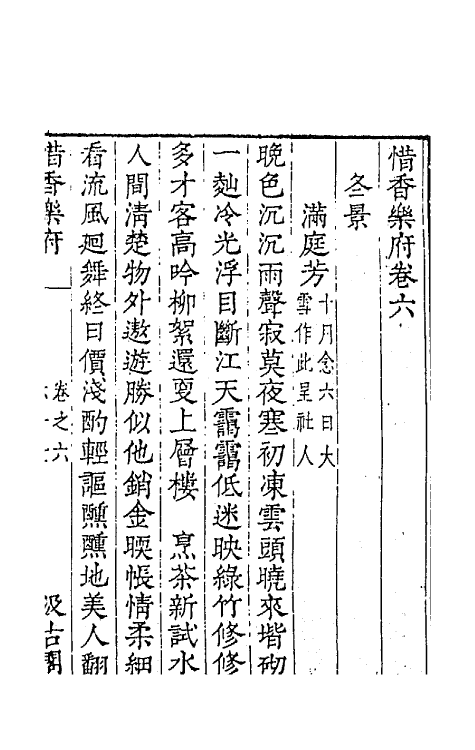 惜香樂府卷六
冬景
滿庭芳十月念六日大
雪作此呈社人
晚色沉沉雨聲寂莫夜寒初凍雲頭曉來堦砌
一𪌓冷光浮目斷江天靄靄低迷映綠竹修修
多才客高吟柳絮還更上層樓　烹茶新試水
人間清楚物外遨遊勝似他銷金煖帳情柔細
看流風廻舞終日價淺酌輕謳醺醺地美人翻
惜香樂府
卷之六
汲古閣